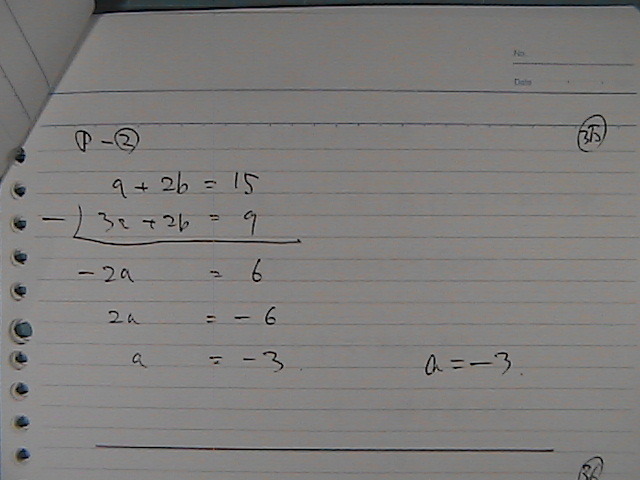 No.
Date
① - ②
35
a + 2b = 15
- ) 3a + 2b = 9
- 2a = 6
2a = - 6
a = - 3. a = - 3.
36